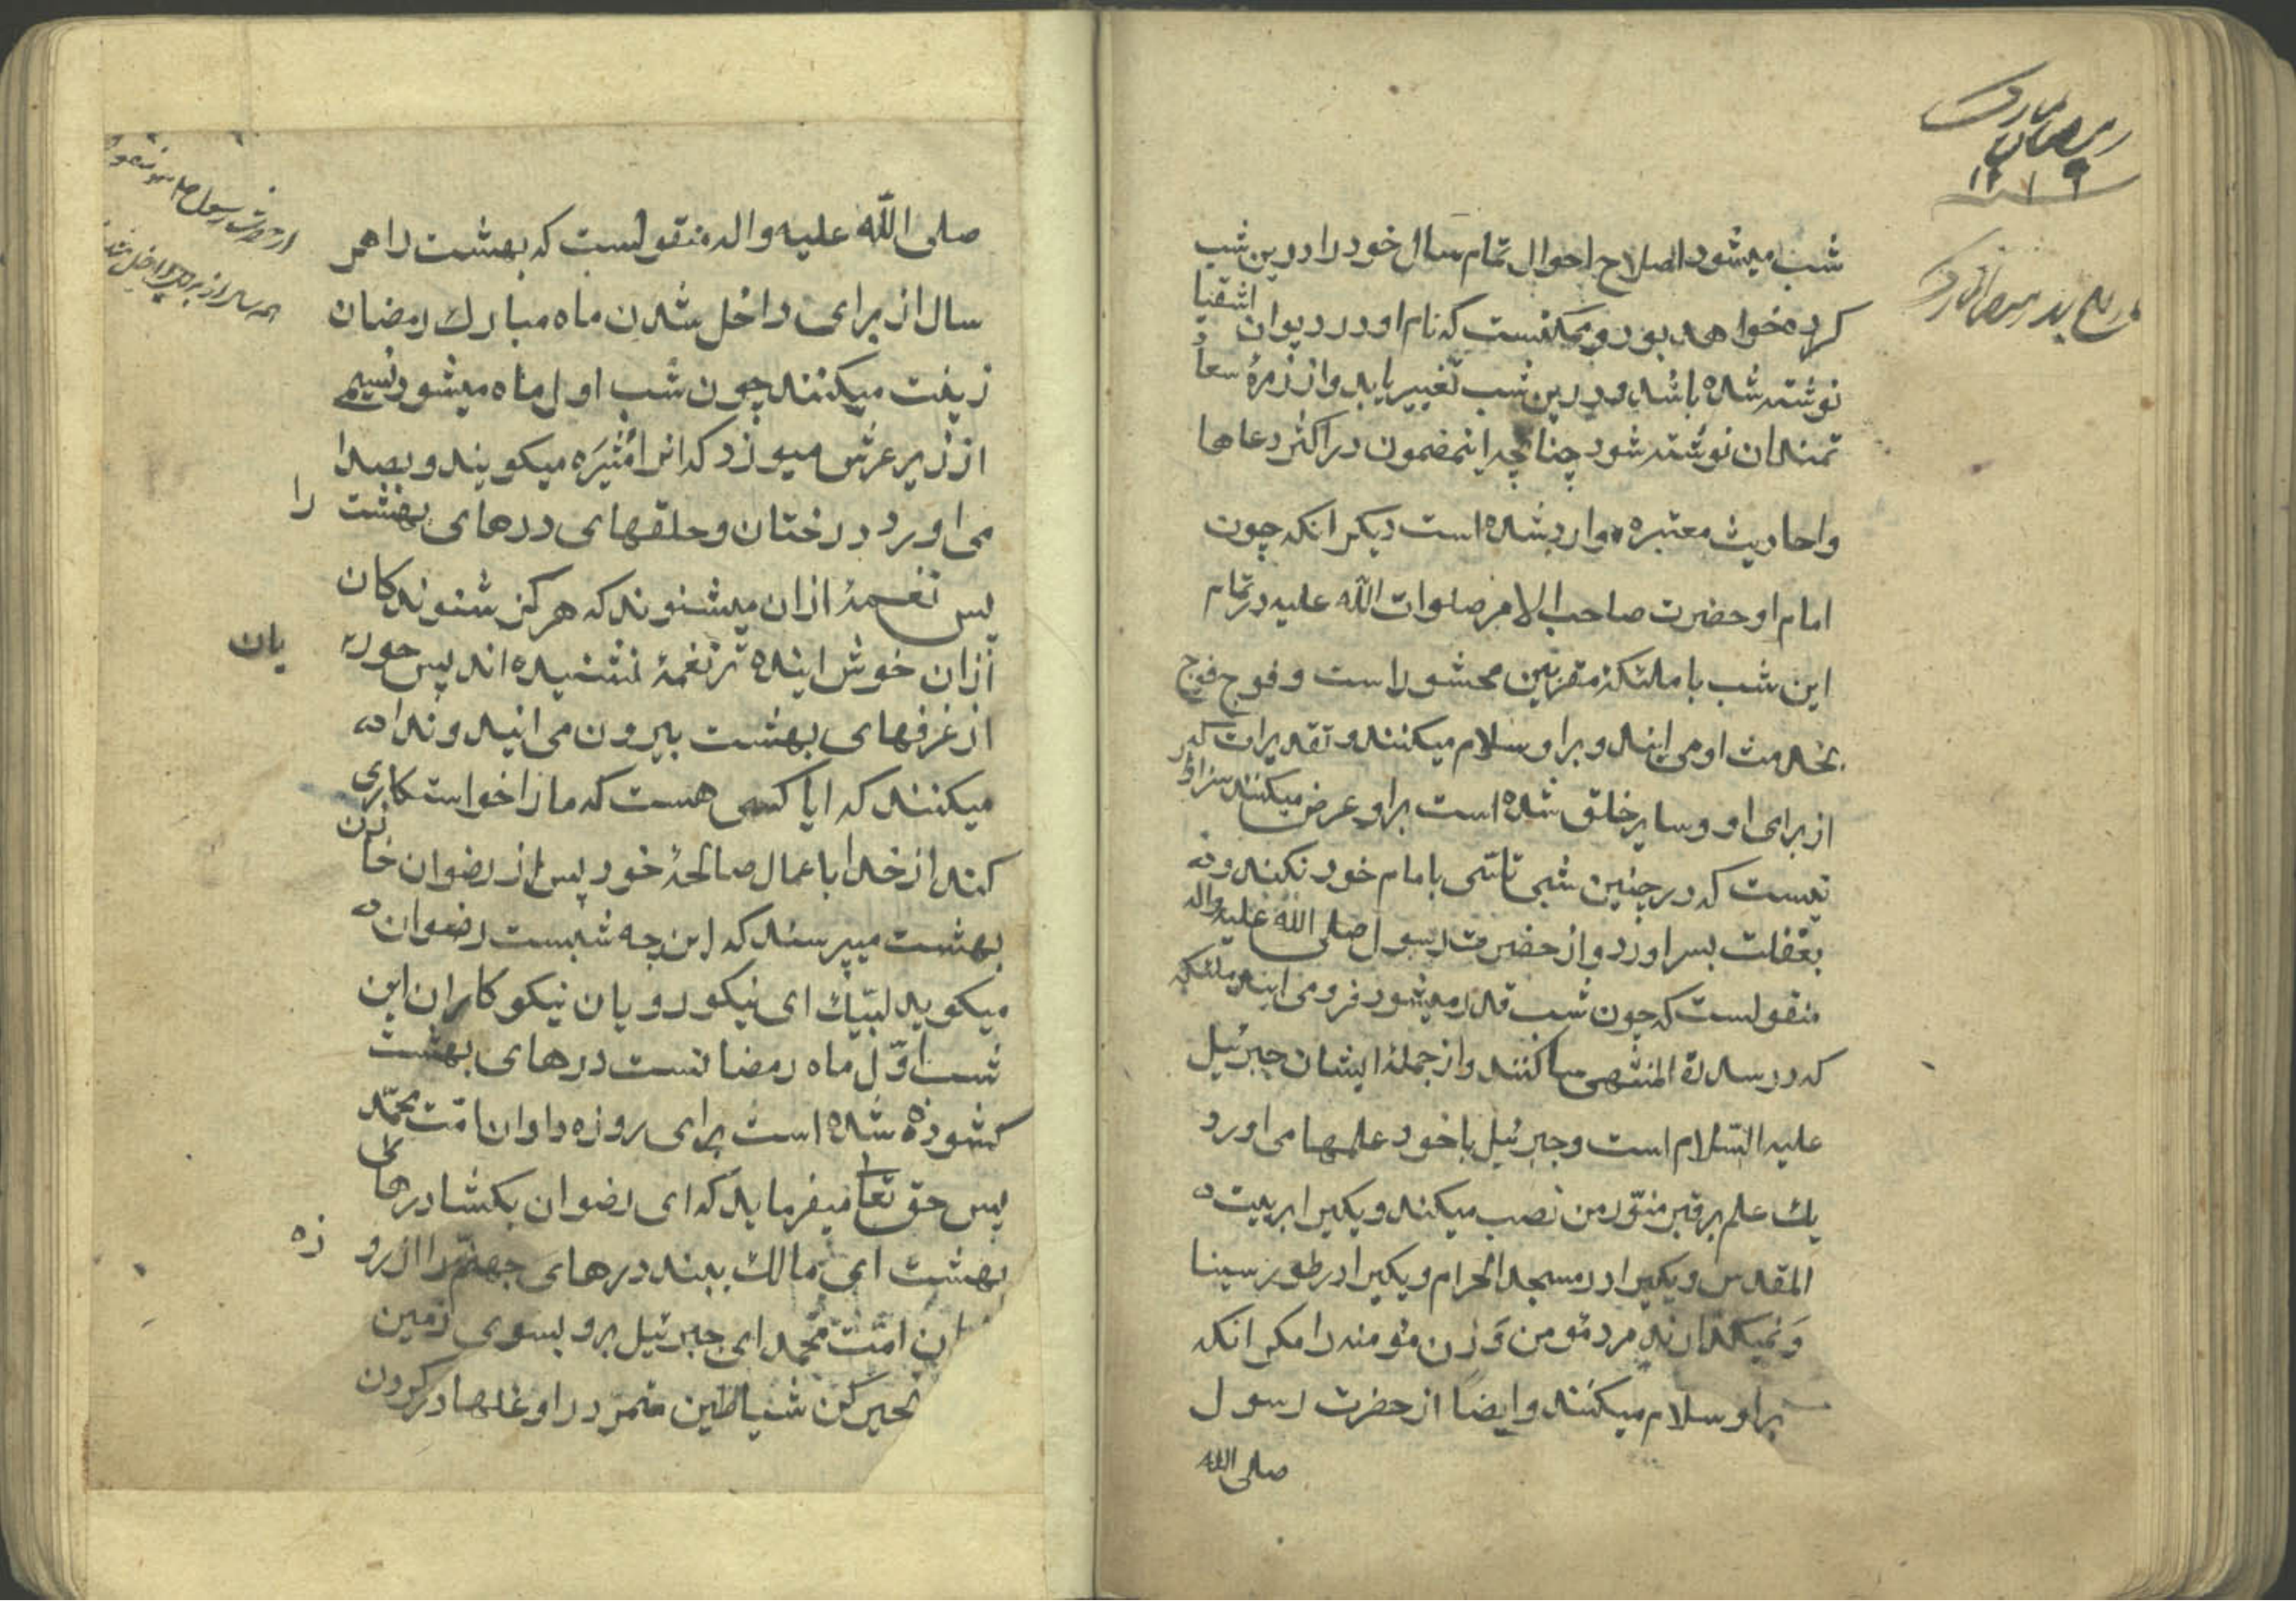 رمضان مبارک
۱۲۱۶
شب میشود اصلاح احوال تمام سال خود را درین شب
کرده خواهد بود و ممکنست که نام او در دیوان اشقیا
نوشته شده باشد و درین شب تغییر یابد و از زمرهٔ سعا
تمندان نوشته شود چنانچه اینمضمون در اکثر دعاها
و احادیث معتبره وارد شده است دیگر انکه چون
امام او حضرت صاحب الامر صلوات اللّه علیه در تمام
این شب با ملئکهٔ مقربین محشور است و فوج فوج
بخدمت او می ایند و بر او سلام میکنند و تقدیرات که
از برای او و سایر خلق شده است بر او عرض میکنند سزاوار
نیست که در چنین شبی تاسّی بامام خود نکند و
بغفلت بسر اورد و از حضرت رسول صلی اللّه علیه واله
منقولست که چون شب قدر میشود فرو می ایند ملئکه
که در سدرة المنتهی ساکنند و از جملهٔ ایشان جبرئیل
علیه السّلام است و جبرئیل با خود علمها می اورد
یك علم بر قبر منوّر من نصب میکند و یکیرا بر بیت
المقدس و یکیرا در مسجد الحرام و یکیرا در طور سینا
و نمیگذارند مرد مؤمن و زن مؤمنه را مگر انکه
بر او سلام میکنند و ایضا از حضرت رسول
صلی الله
از حضرت رسول
صلی اللّه علیه واله منقولست که بهشت را هر
سال از برای داخل شدن ماه مبارك رمضان
زینت میکنند چون شب اول ماه میشود نسیمی
از زیر عرش میوزد که انرا مُثیرَه میکویند و بصدا
می اورد درختان و حلقهای درهای بهشت را
پس نغمهٔ ازان میشنوند که هرکز شنوندکان
ازان خوش اینده تر نغمهٔ نشنیده اند پس حور یان
از غرفهای بهشت بیرون می ایند و ندا
میکنند که ایا کسی هست که ما را خواستکاری
کند از خدا باعمال صالحهٔ خود پس از رضوان خا زن
بهشت میپرسند که این چه شبست رضوان
میکوید لبّیك ای نیکو رویان نیکو کاران این
شب اوّل ماه رمضانست درهای بهشت
کشوده شده است برای روزه داران امّت محمّد
پس حق تعا لی میفرماید که ای رضوان بکشا درهای
بهشت ای مالك ببند درهای جهنّم را از رو زه
ان امّت محمد ای جبرئیل برو بسوی زمین
کن شیاطین متمرّد را و غلها در کردن